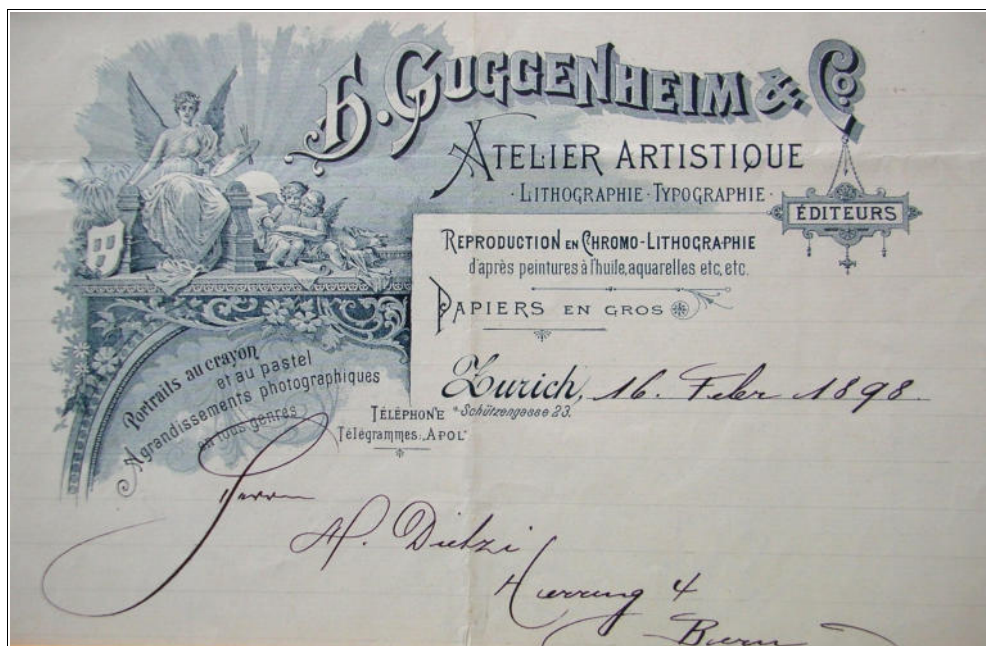 H. GUGGENHEIM & Co
ATELIER ARTISTIQUE
· LITHOGRAPHIE · TYPOGRAPHIE ·
ÉDITEURS
REPRODUCTION EN CHROMO-LITHOGRAPHIE
d'après peintures à l'huile, aquarelles etc, etc.
PAPIERS EN GROS
Portraits au crayon
et au pastel
Agrandissements photographiques
en tous genres
Zurich, 16. Febr 1898.
TÉLÉPHONE * Schützengasse 23.
Télégrammes: „APOL"
Herrn
A. Dietzi
4
Bern